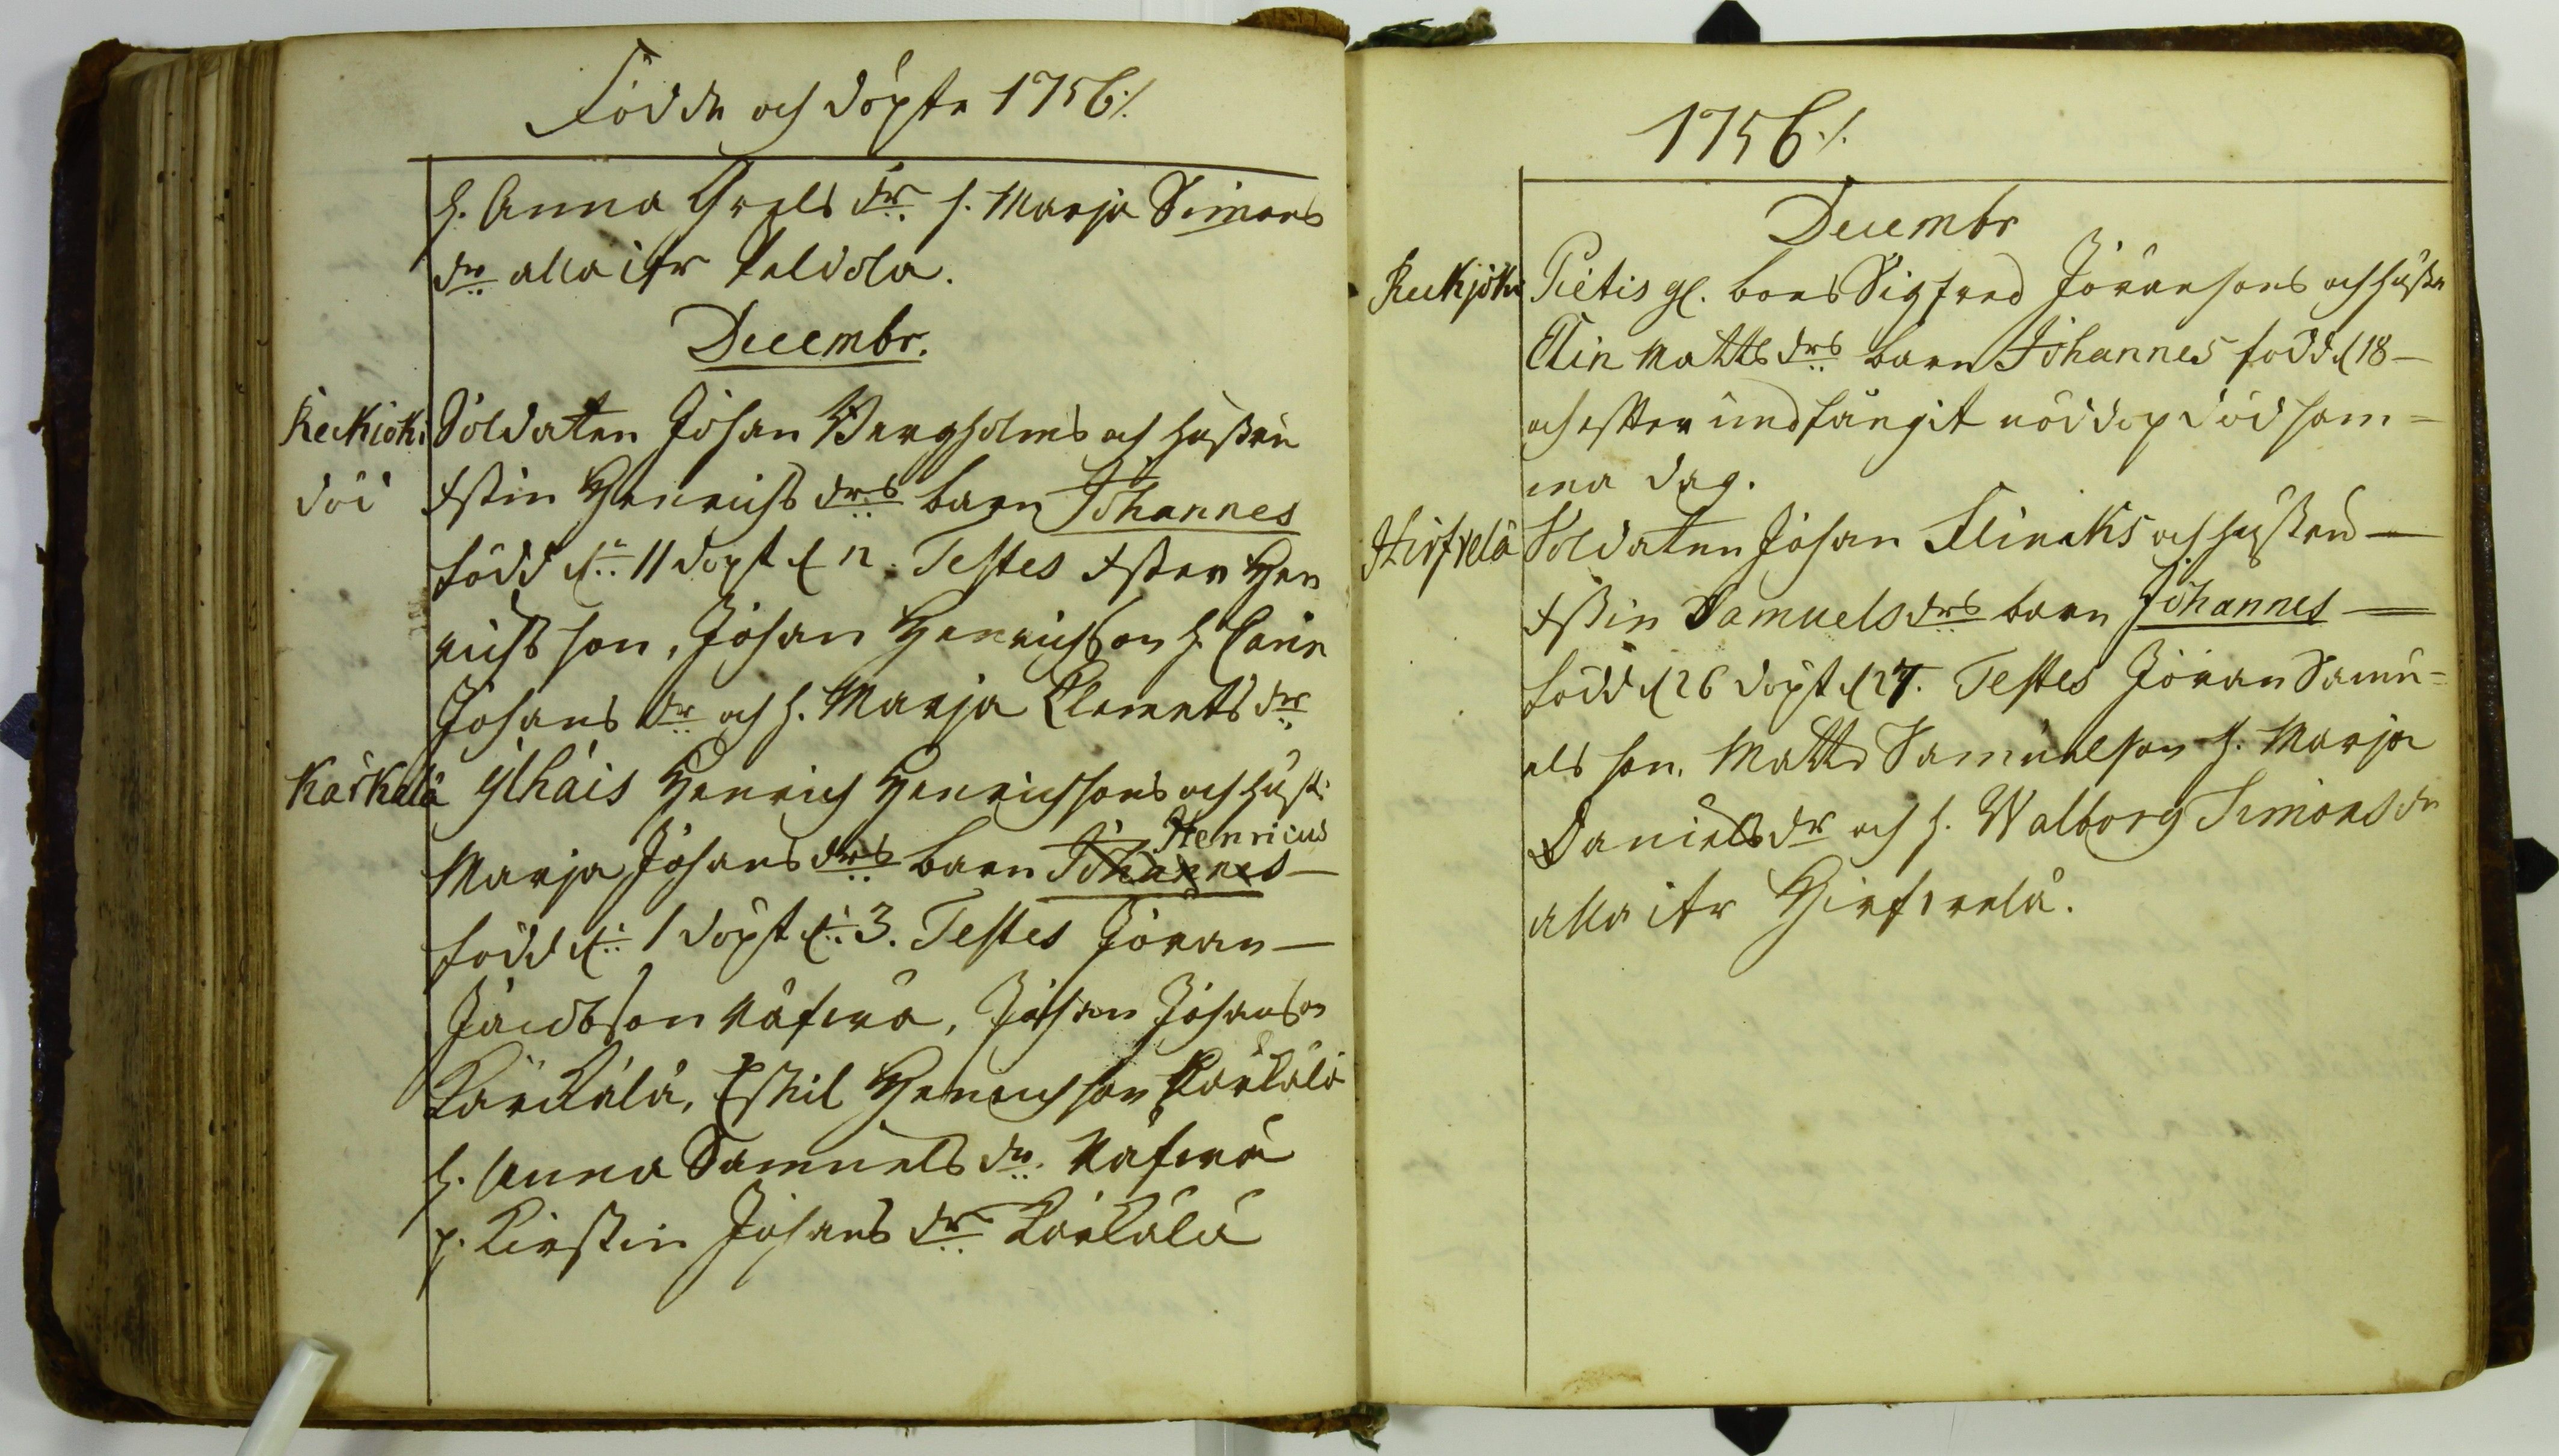 Födde och döpte 1756 ⁒
h. Anna Grels dr. h. Marja Simons
dr alla ifr Peldola.
Decembr.
Keikiök. Soldaten Johan Bergholms och hustru
död Estin Henrichs drs barn Johannes
född d. 11 döpt d 12. Testes Esten Hen
richsson, Johan Henrichson h. Carin
Johans dr och h. Marja Clemets dr
Kärkälä Ylháis Henrich Henrichsons och hust:
Marja Johans drs barn Johannes Henricus
född d. 1 döpt d. 3. Testes Jöran
Jacobson Näfverå, Johan Johanson
Kärkälä, Eskil Henrichson Kärkälä
h. Anna Samuels dr. Näfverå
p. Kirstin Johans dr Kärkälä
1756 ⁒
Decembr
Keikjöki Pietis gl. bons Sigfred Jöransons och hustr
Elin Matts drs barn Johannes född d 18
och efter undfångit nöddop död sam=
ma dag.
Hirfvelä Soldaten Johan Flincks och hustru
Estin Samuels drs barn Johannes
född d 26 döpt d 27. Testes Jöran Samu=
els son. Matts Samuelson h. Marja
Daniels dr och h. Walborg Simons dr
alla ifr Hirfvelä.